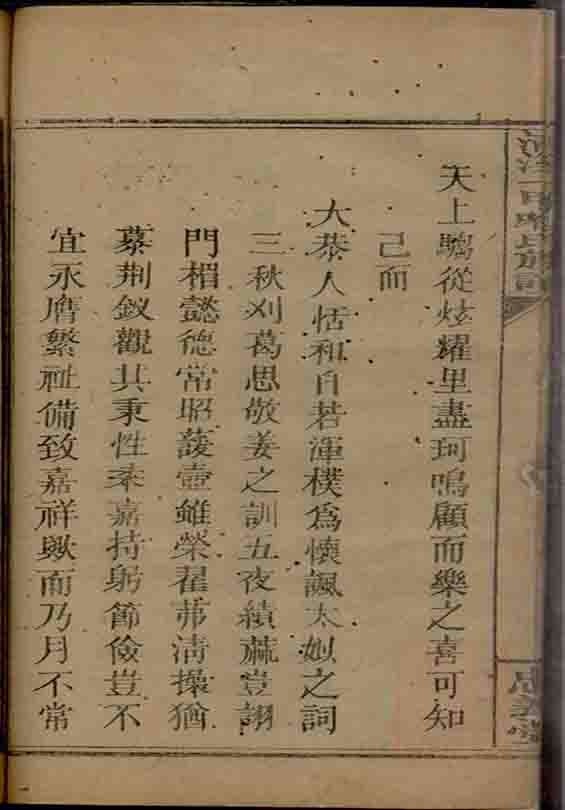 天上騶從炫耀里盡珂鳴顧而樂之喜可知
己而
大恭人恬和自若渾樸爲懷諷太姒之詞
三秋刈葛思敬姜之訓五夜績蔴豈詡
門楣懿德常昭䕶壺雖榮翟茀淸操猶
慕荆釵觀其秉性柔嘉持躬節儉豈不
宜永膺繁祉備致嘉祥歟而乃月不常
氏族